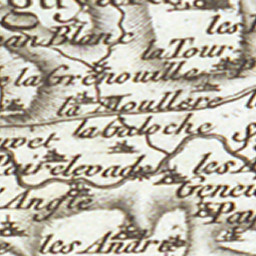 an Blanc
les
la Tour
la Grenouiller
la Moullere
la galoche
Pairelevade
les A
Geneu
l'Angle
Pay
les André